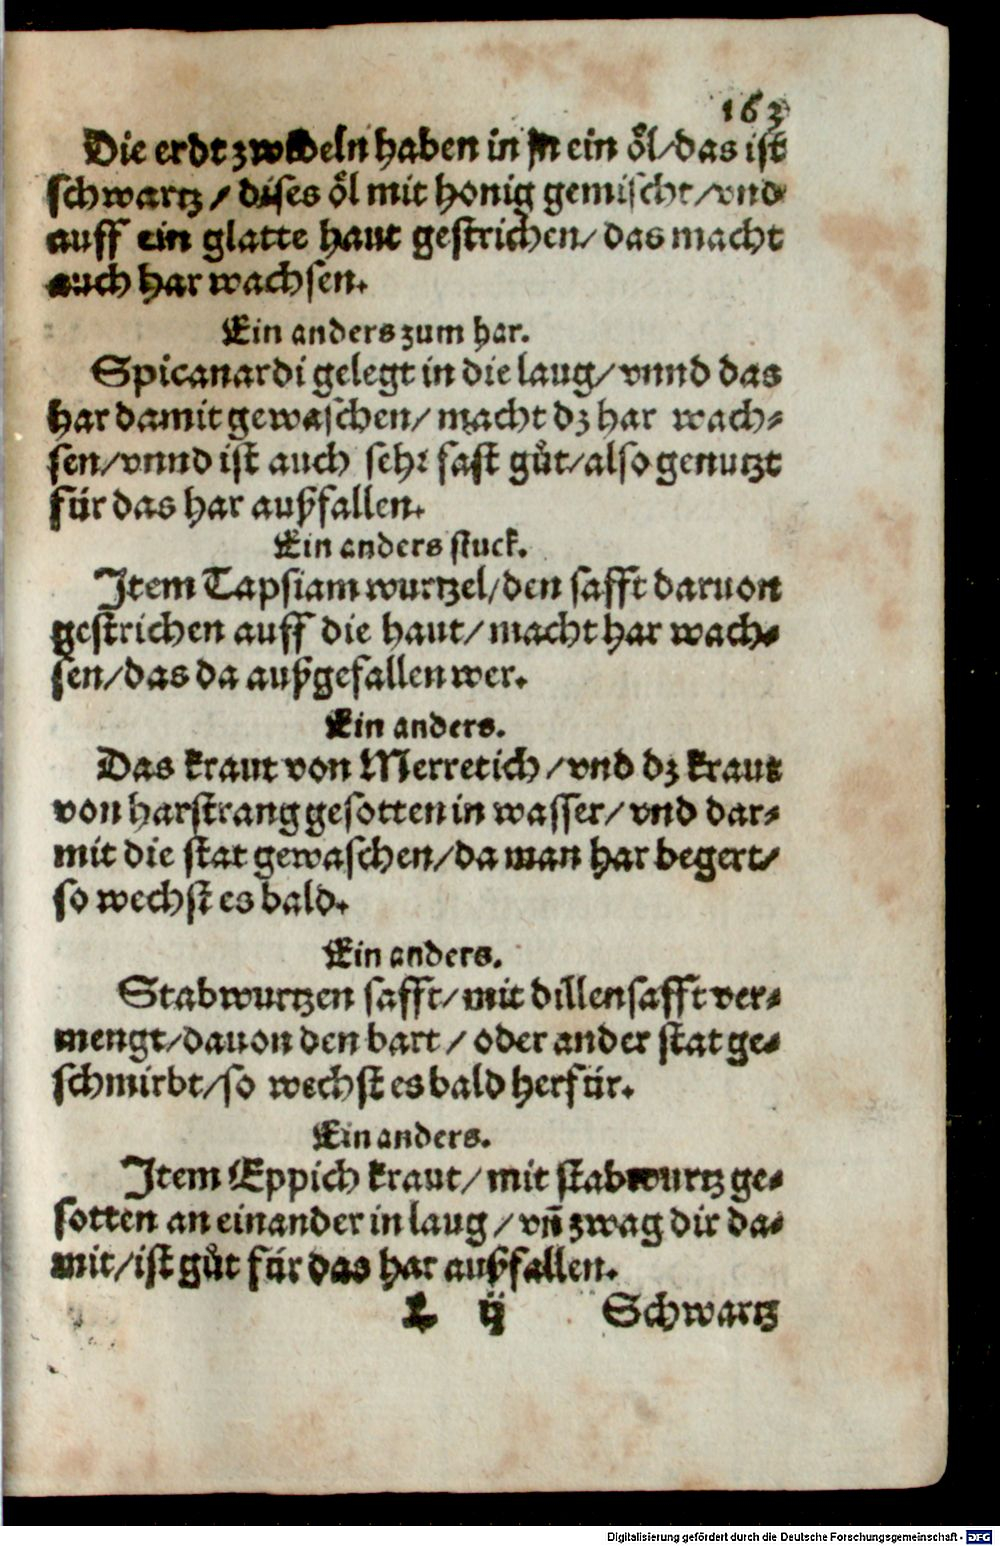 163
Die erdtzwibeln haben in jn ein öl/das ist
schwartz/dises öl mit honig gemischt/vnd
auff ein glatte haut gestrichen/das macht
auch har wachsen.
Ein anders zum har.
Spicanardi gelegt in die laug/vnnd das
har damit gewaschen/macht dz har wach⸗
sen/vnnd ist auch sehr fast gůt/also genutzt
für das har außfallen.
Ein anders stuck.
Item Tapsiam wurtzel/den safft daruon
gestrichen auff die haut/macht har wach⸗
sen/das da außgefallen wer.
Ein anders.
Das kraut von Merretich/vnd dz kraut
von harstrang gesotten in wasser/vnd dar⸗
mit die stat gewaschen/da man har begert/
so wechst es bald.
Ein anders.
Stabwurtzen safft/mit dillensafft ver⸗
mengt/dauon den bart/oder ander stat ge⸗
schmirbt/so wechst es bald herfür.
Ein anders.
Item Eppich kraut/mit stabwurtz ge⸗
sotten an einander in laug/vñ zwag dir da⸗
mit/ist gůt für das har außfallen.
ij Schwartz
Digitalisierung gefördert durch die Deutsche Forschungsgemeinschaft - DFG